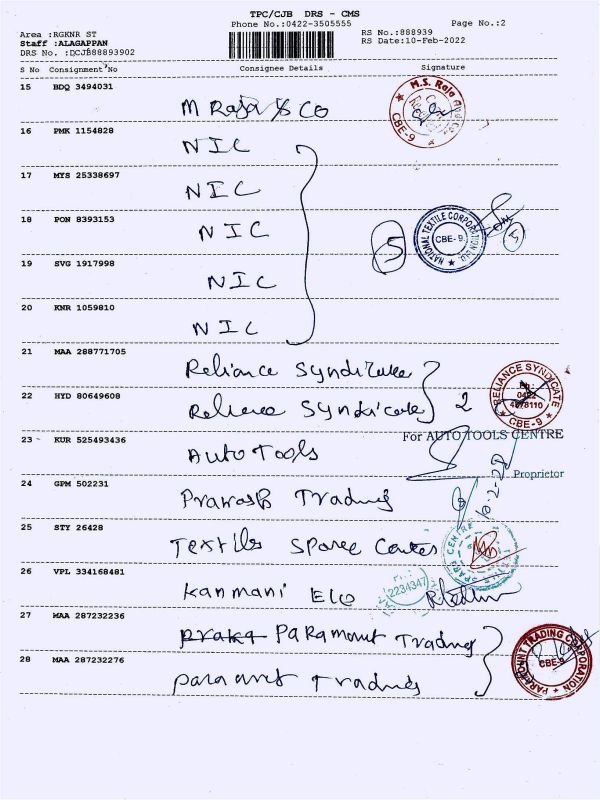 TPC/CJB DRS - CMS
Phone No.:0422-3505555
Page No.:2
Area :RGKNR ST
RS No.:888939
Staff :ALAGAPPAN
RS Date:10-Feb-2022
DRS No. :DCJB88893902
S No Consignment No Consignee Details Signature
15 BDQ 3494031 M Raja & CO
M.S. Raja CBE-9
16 PMK 1154828 NIC
17 MYS 25338697 NIC
18 PON 8393153 NIC
5 NATIONAL TEXTILE CORPORATION CBE-9
19 SVG 1917998 NIC
20 KNR 1059810 NIC
21 MAA 288771705 Reliance Syndicate
22 HYD 80649608 Reliance Syndicate 2
RELIANCE SYNDICATE 0422 4978110 CBE-9
For AUTO TOOLS CENTRE
23 KUR 525493436 AUTO TOOLS
Proprietor
10-2-22
24 GPM 502231 Trading
25 STY 26428 Textile Centre
26 VPL 334168481 Kanmani
2234347
27 MAA 287232236 Paramount Trading
PARAMOUNT TRADING CORPORATION CBE-9
28 MAA 287232276 Trading